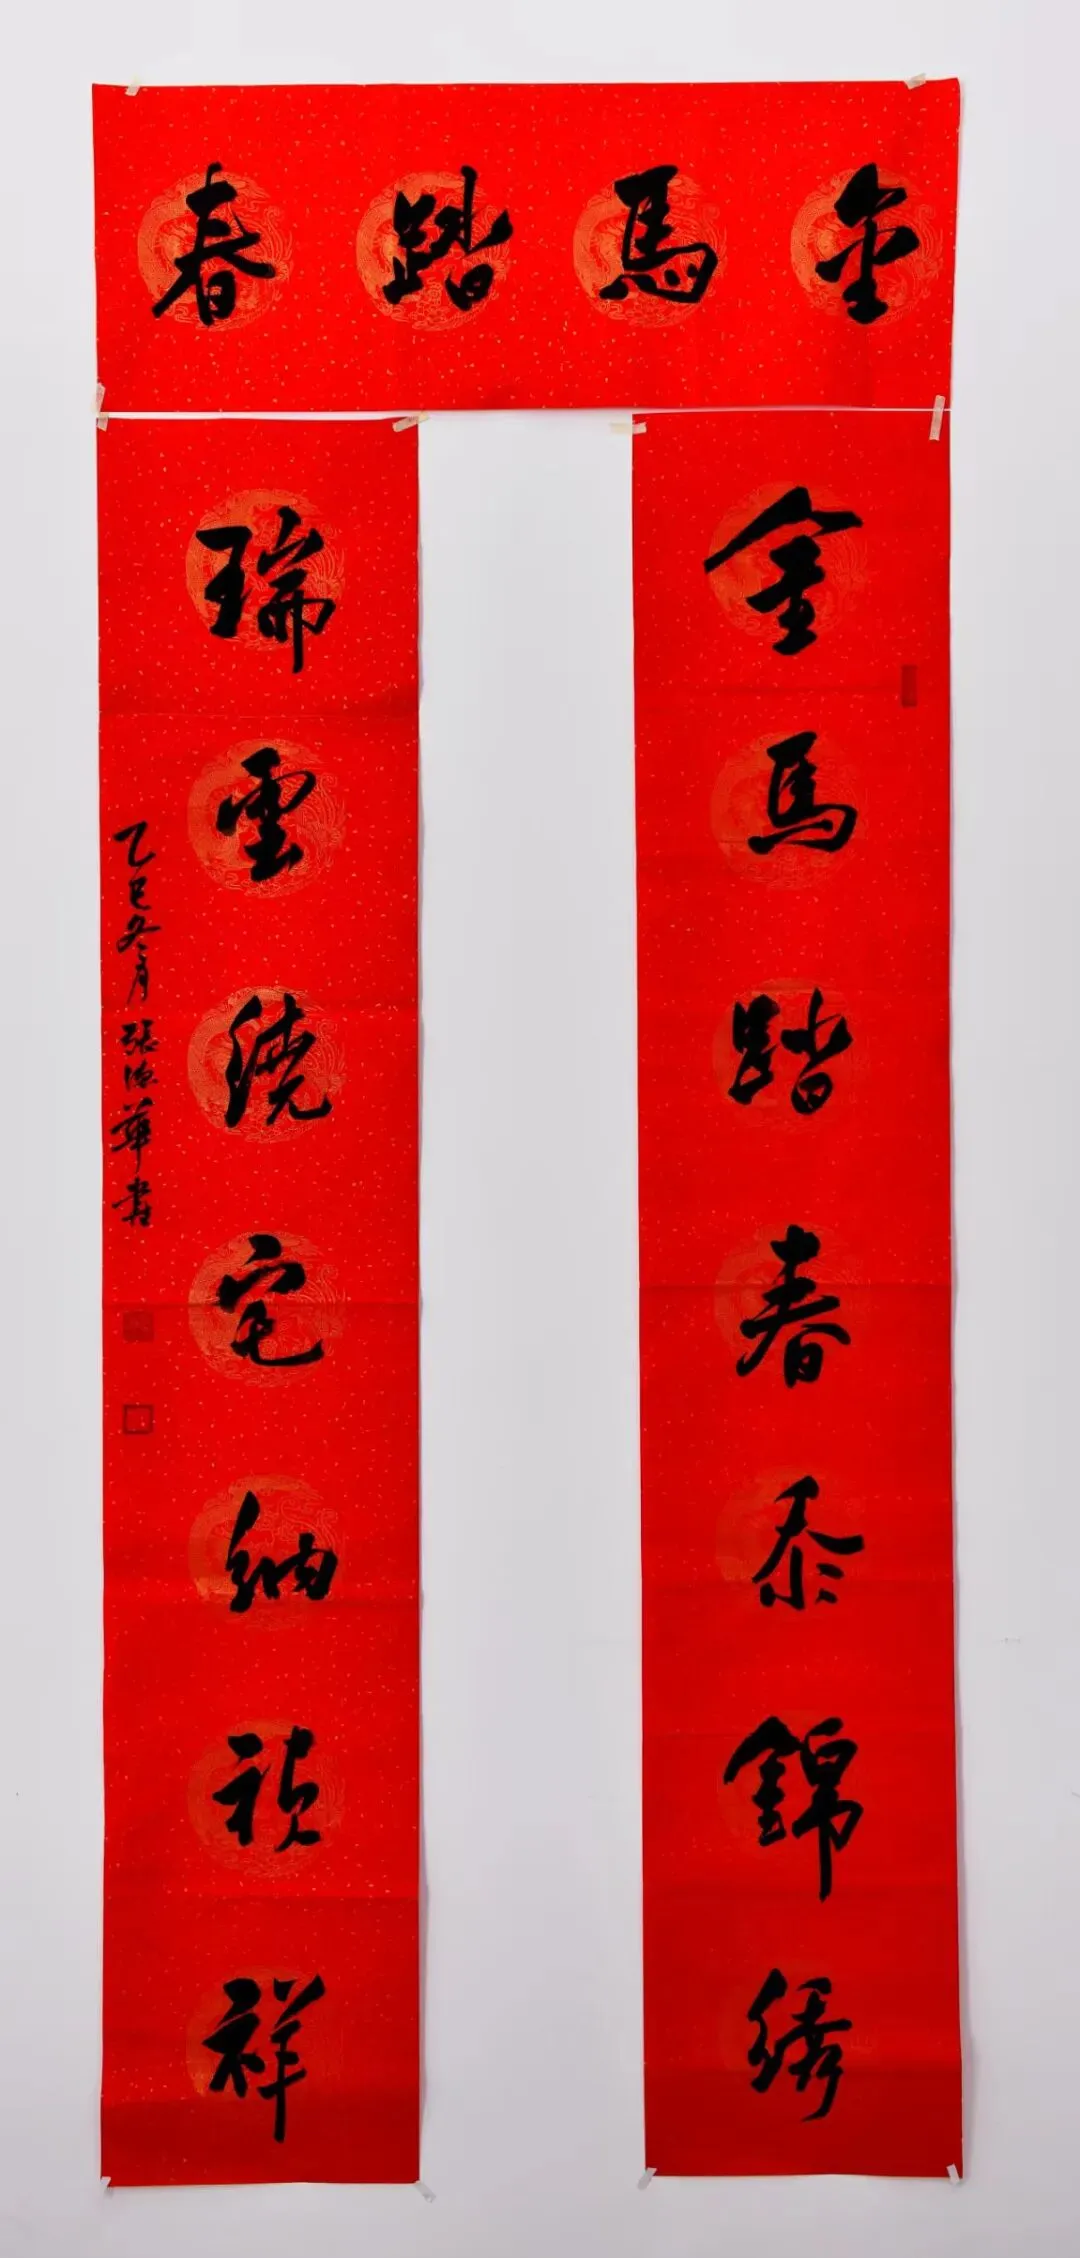 金馬踏春
金馬踏春泰錦綉
瑞雲繞宅納禎祥
乙巳冬月張德華書